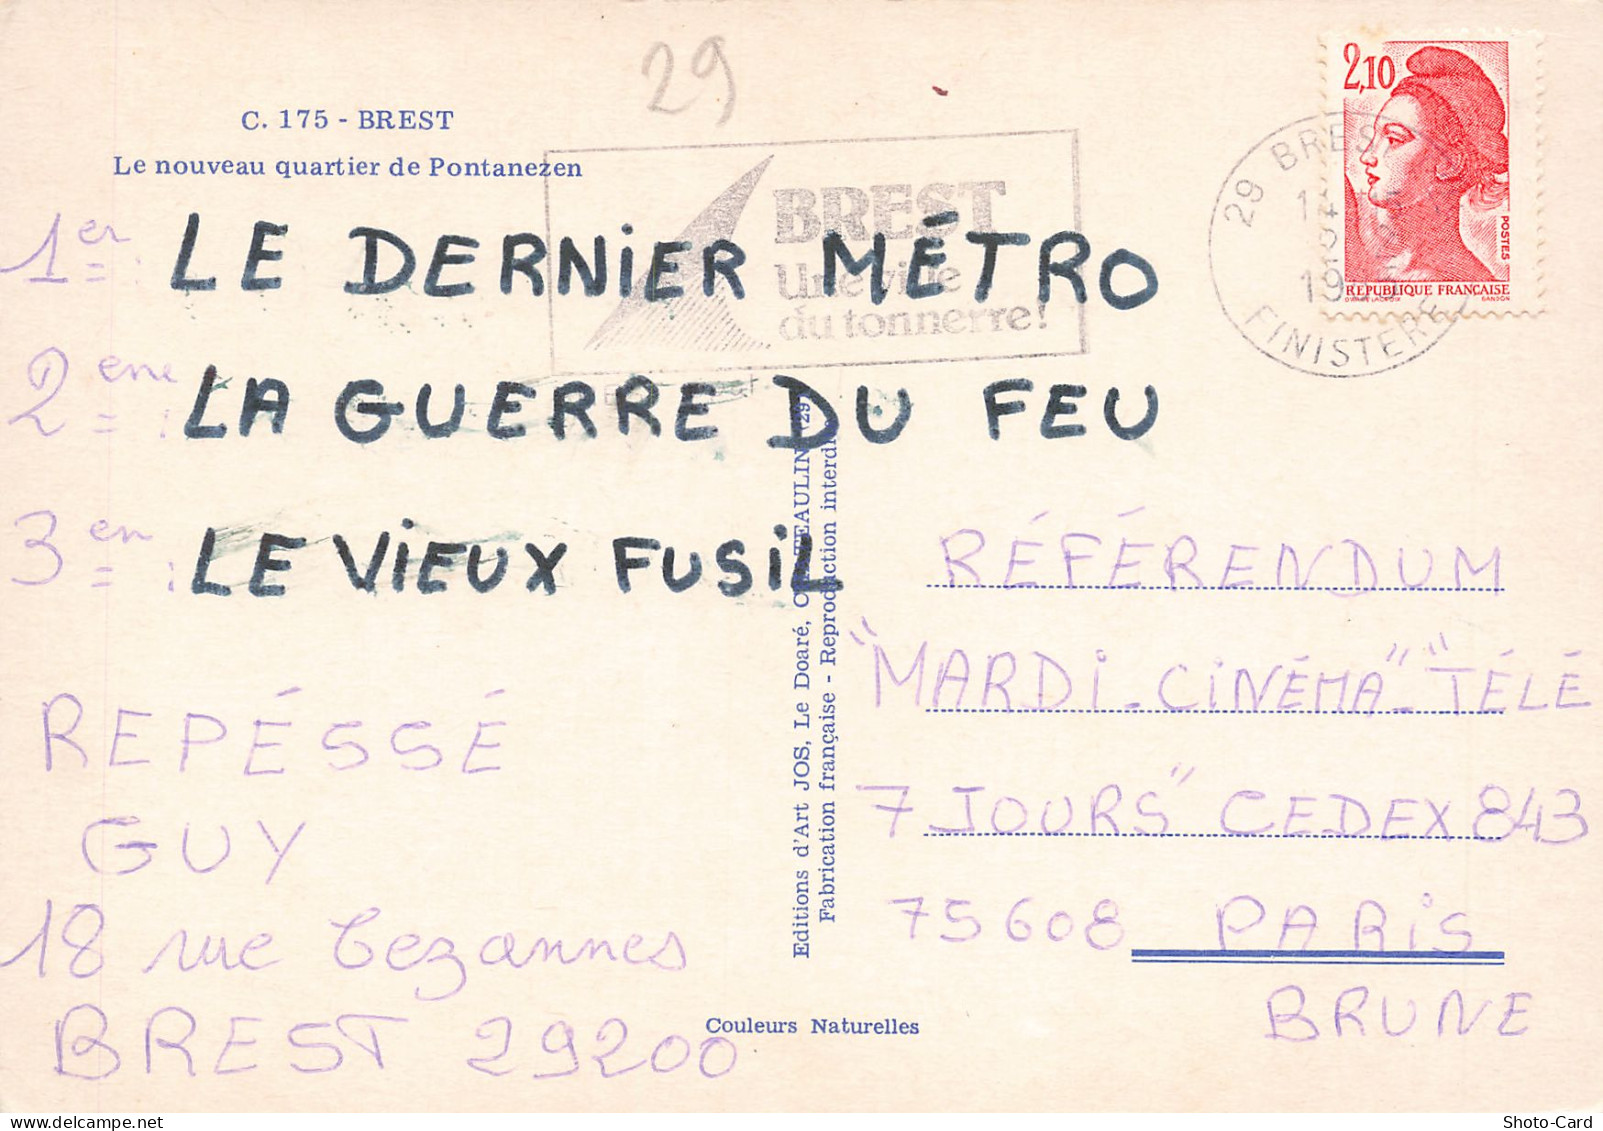 29
C. 175 - BREST
Le nouveau quartier de Pontanezen
BREST
Une ville
du tonnerre!
2,10
POSTES
REPUBLIQUE FRANÇAISE
29 BREST
FINISTERE
1er : LE DERNIER MÉTRO
2eme : LA GUERRE DU FEU
3en : LE VIEUX FUSIL
REPÉSSÉ
GUY
18 rue Cezannes
BREST 29200
Editions d'Art JOS, Le Doaré,
Fabrication française - Reproduction
Couleurs Naturelles
RÉFÉRENDUM
"MARDI-CINÉMA"-"TÉLÉ
7 JOURS" CEDEX 843
75608 PARIS
BRUNE
Shoto-Card